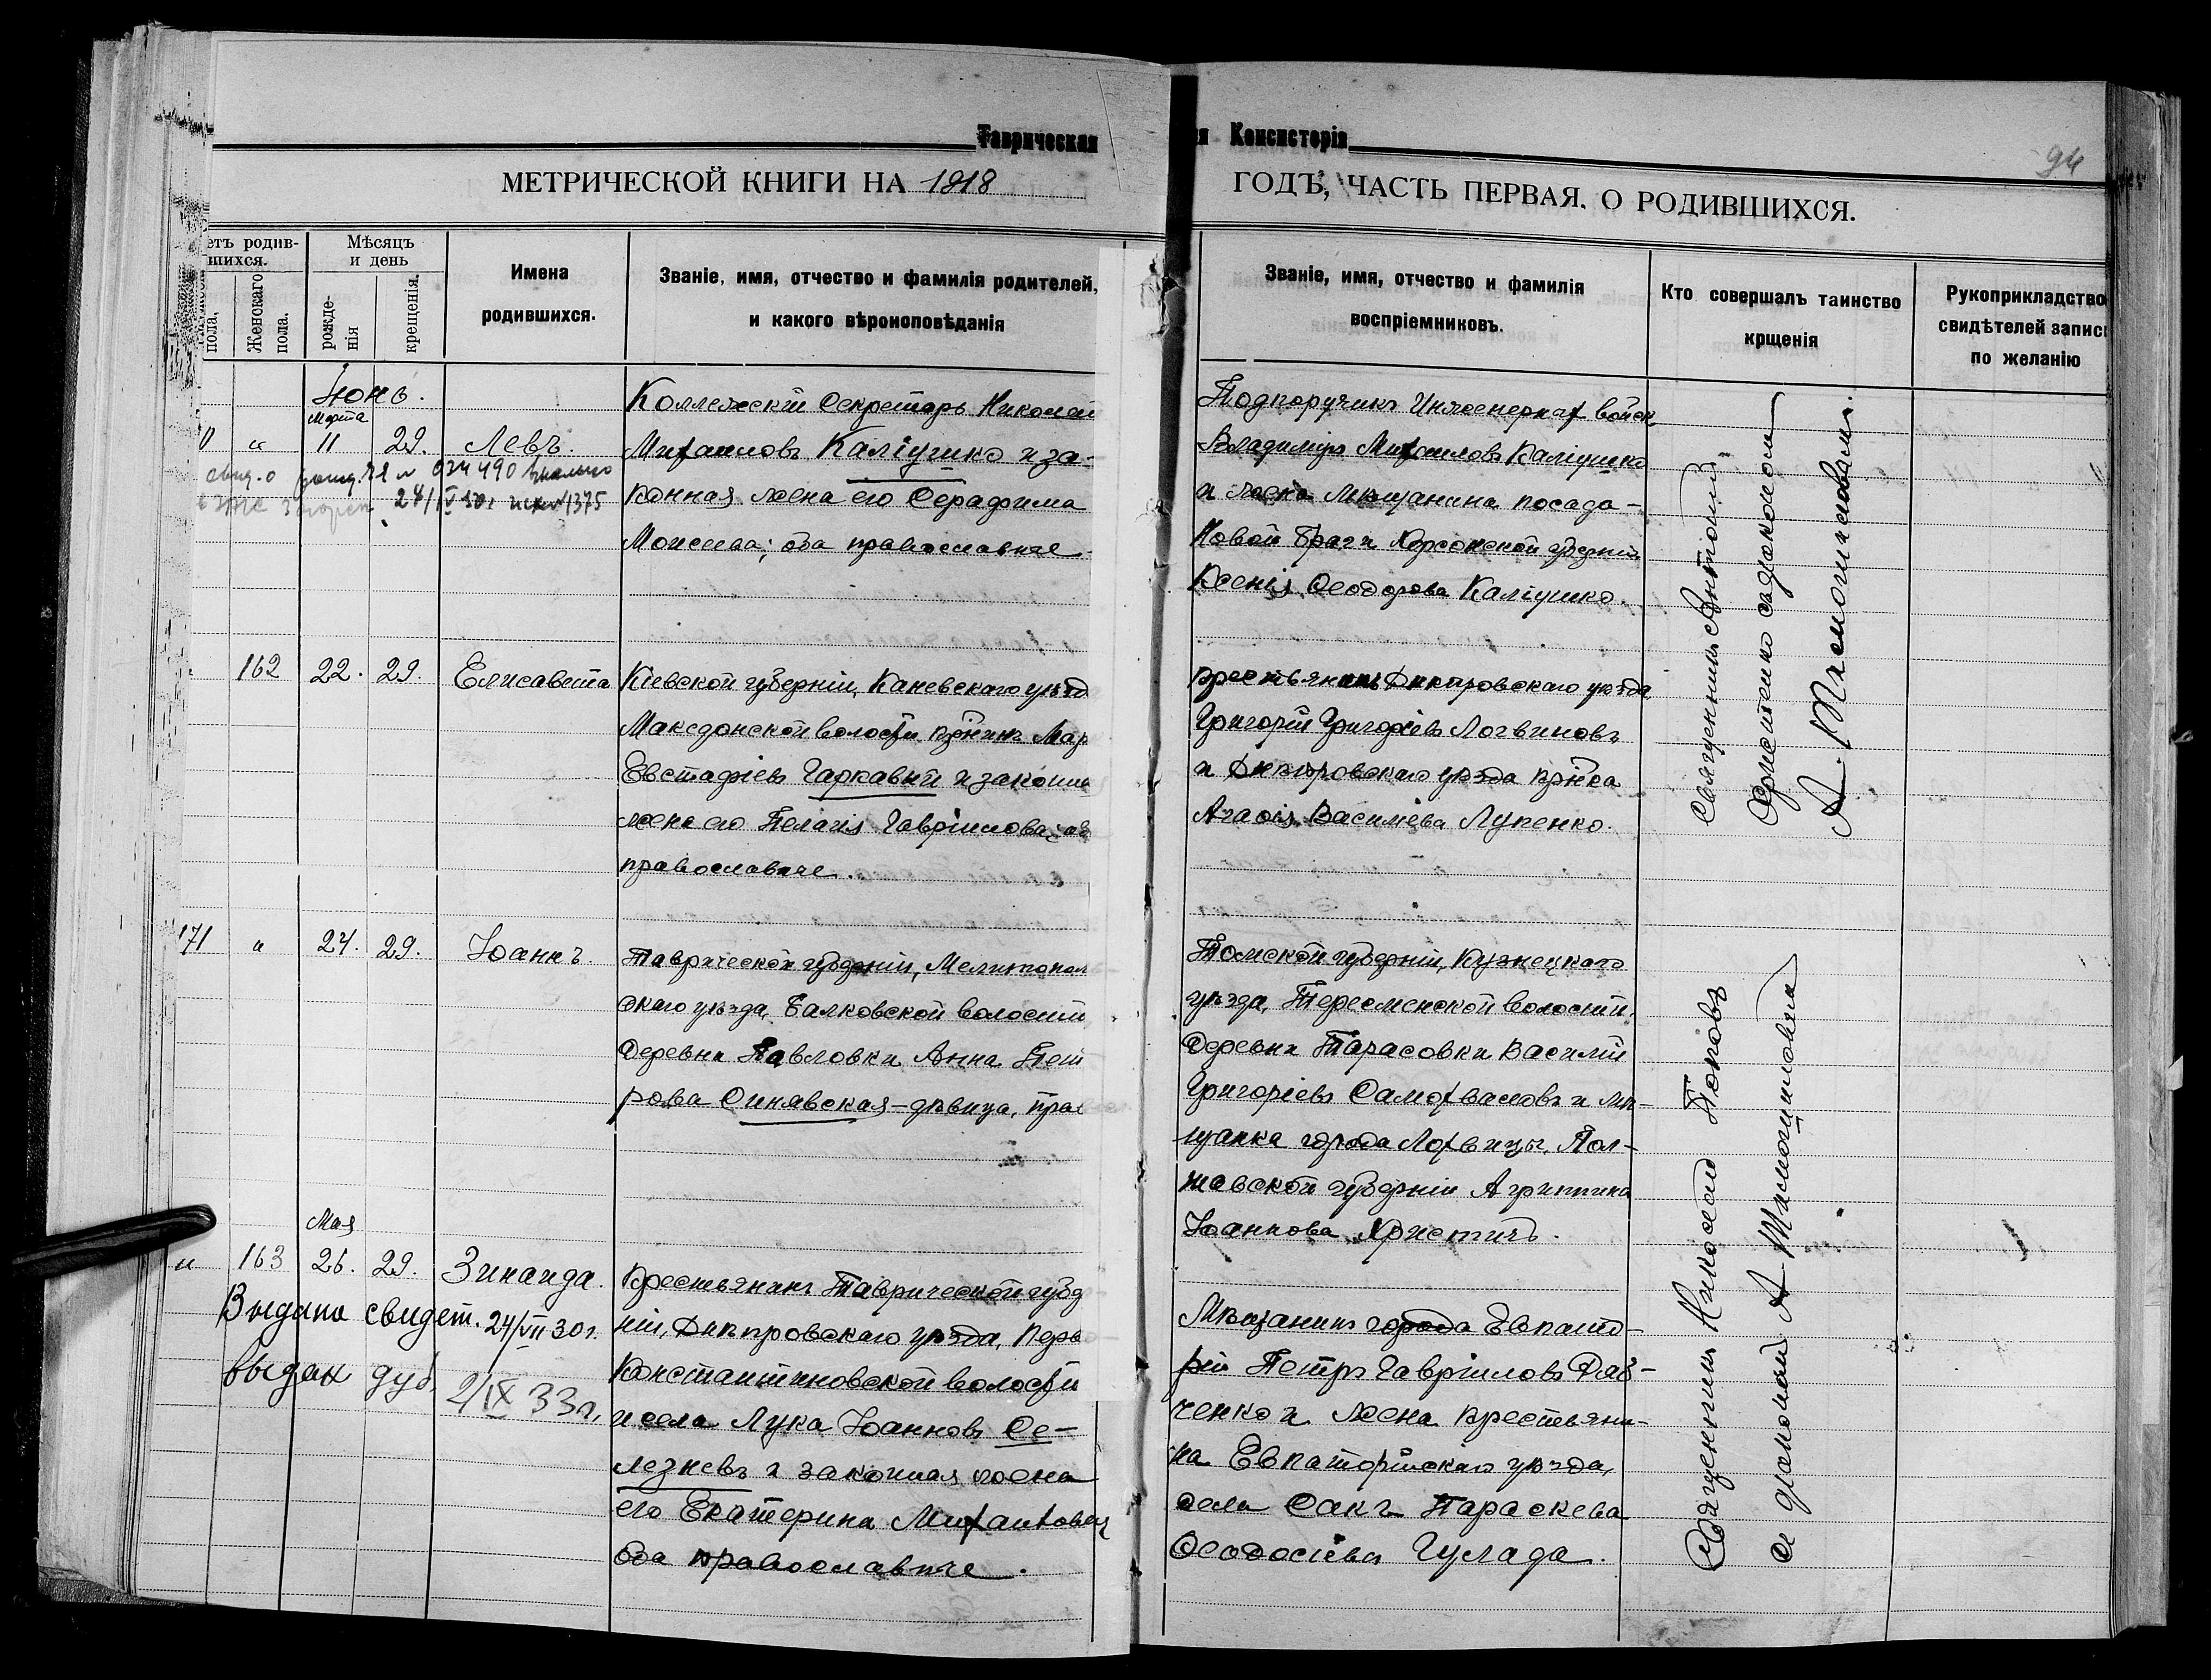 Таврическая
я Консисторія
94
МЕТРИЧЕСКОЙ КНИГИ НА 1918
ГОДЪ, ЧАСТЬ ПЕРВАЯ, О РОДИВШИХСЯ.
етъ родив-
шихся.
пола.
Женскаго
пола.
Мѣсяцъ
и день
рожде-
нія
крещенія.
Имена
родившихся.
Званіе, имя, отчество и фамилія родителей,
и какого вѣроисповѣданія
Званіе, имя, отчество и фамилія
воспріемниковъ.
Кто совершалъ таинство
крщенія
Рукоприкладство
свидѣтелей запис
по желанію
Іюнь.
Марта
0 " 11 29. Левъ.
24/IV 30г 1375
Коллежскій Секретарь Николай
Михаиловъ Каліушко и за-
конная жена его Серафима
Моисеева; оба православные
Подпоручикъ Инженерныхъ войск
Владиміръ Михаиловъ Каліушко
и жена мѣщанина посада
Новой Праги Херсонской губерніи
Ксенія Ѳеодорова Каліушко.
Священникъ Антоній
съ діакономъ
А. Тихомировымъ.
162 22. 29. Елисавета
Кіевской губерніи, Каневскаго уѣзд
Македонской волости кр-нинъ Мар
Евстафіевъ Гаркавый и законна
жена его Пелагія Гавріилова, об
православные.
Крестьянинъ Днѣпровскаго уѣзда
Григорій Григоріевъ Логвиновъ
и Днѣпровскаго уѣзда кр-нка
Агафія Василіева Лупенко.
171 " 24. 29. Іоаннъ.
Таврической губерніи, Мелитополь
скаго уѣзда, Балковской волости
деревни Павловки Анна Пет
рова Синявская-дѣвица, прав
Томской губерніи, Кузнецкаго
уѣзда, волости,
деревни Тарасовки Василій
Григоріевъ Самохваловъ и мѣ-
щанка города Лохвицы, Пол-
тавской губерніи Агриппина
Іоаннова Христичъ.
Мая
" 163 26. 29. Зинаида.
Выдано свидет. 24/VII 30г.
выдан дуб. 2/IX 33г.
Крестьянинъ Таврической губер
ніи, Днѣпровскаго уѣзда, Перво
Константиновской волости
и села Лука Іоанновъ Се-
лезневъ и законная жена
его Екатерина
оба православные.
Мѣщанинъ города Евпато-
ріи Петръ Гавріиловъ
и жена крестьяни-
на Евпаторійскаго уѣзда,
села Саки Параскева
Ѳеодосіева Гулада.
Священникъ Николай Поповъ
съ діакономъ А